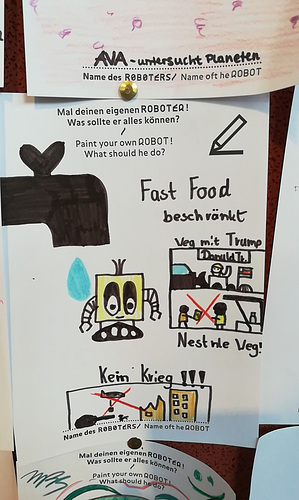 AVA - untersucht Planeten
Name des ROBOTERS/ Name of the ROBOT
Mal deinen eigenen ROBOTER!
Was sollte er alles können?
/
Paint your own ROBOT!
What should he do?
Fast Food
beschränkt
Veg mit Trump
Donald Tr.
Nestnle Veg!
Kein Krieg !!!
Name des ROBOTERS/ Name of the ROBOT
Mal deinen eigenen ROBOTER!
Was sollte er alles können?
/
Paint your own ROBOT!
What should he do?